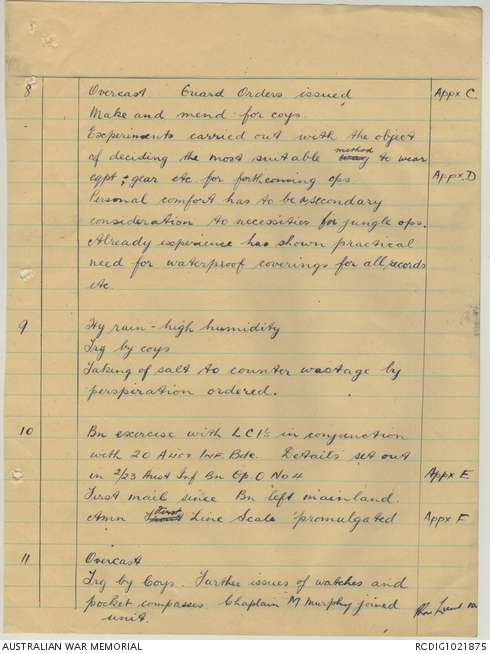 8 Overcast Guard Orders issued Appx C
Make and mend for coys.
Experiments carried out with the object
of deciding the most suitable method to wear
eqpt & gear etc for forthcoming ops Appx D
Personal comfort has to be a secondary
consideration to necessities for jungle ops.
Already experience has shown practical
need for waterproof coverings for all records
etc.
9 Hy rain - high humidity
Trg by coys
Taking of salt to counter wastage by
perspiration ordered.
10 Bn exercise with LCI's in conjunction
with 20 Aust Inf Bde. Details set out
in 2/23 Aust Inf Bn Op. O No 4 Appx E
First mail since Bn left mainland.
Amn First Line Scale promulgated Appx F
11 Overcast
Trg by Coys. Further issues of watches and
pocket compasses. Chaplain M Murphy joined
unit.
AUSTRALIAN WAR MEMORIAL RCDIG1021875